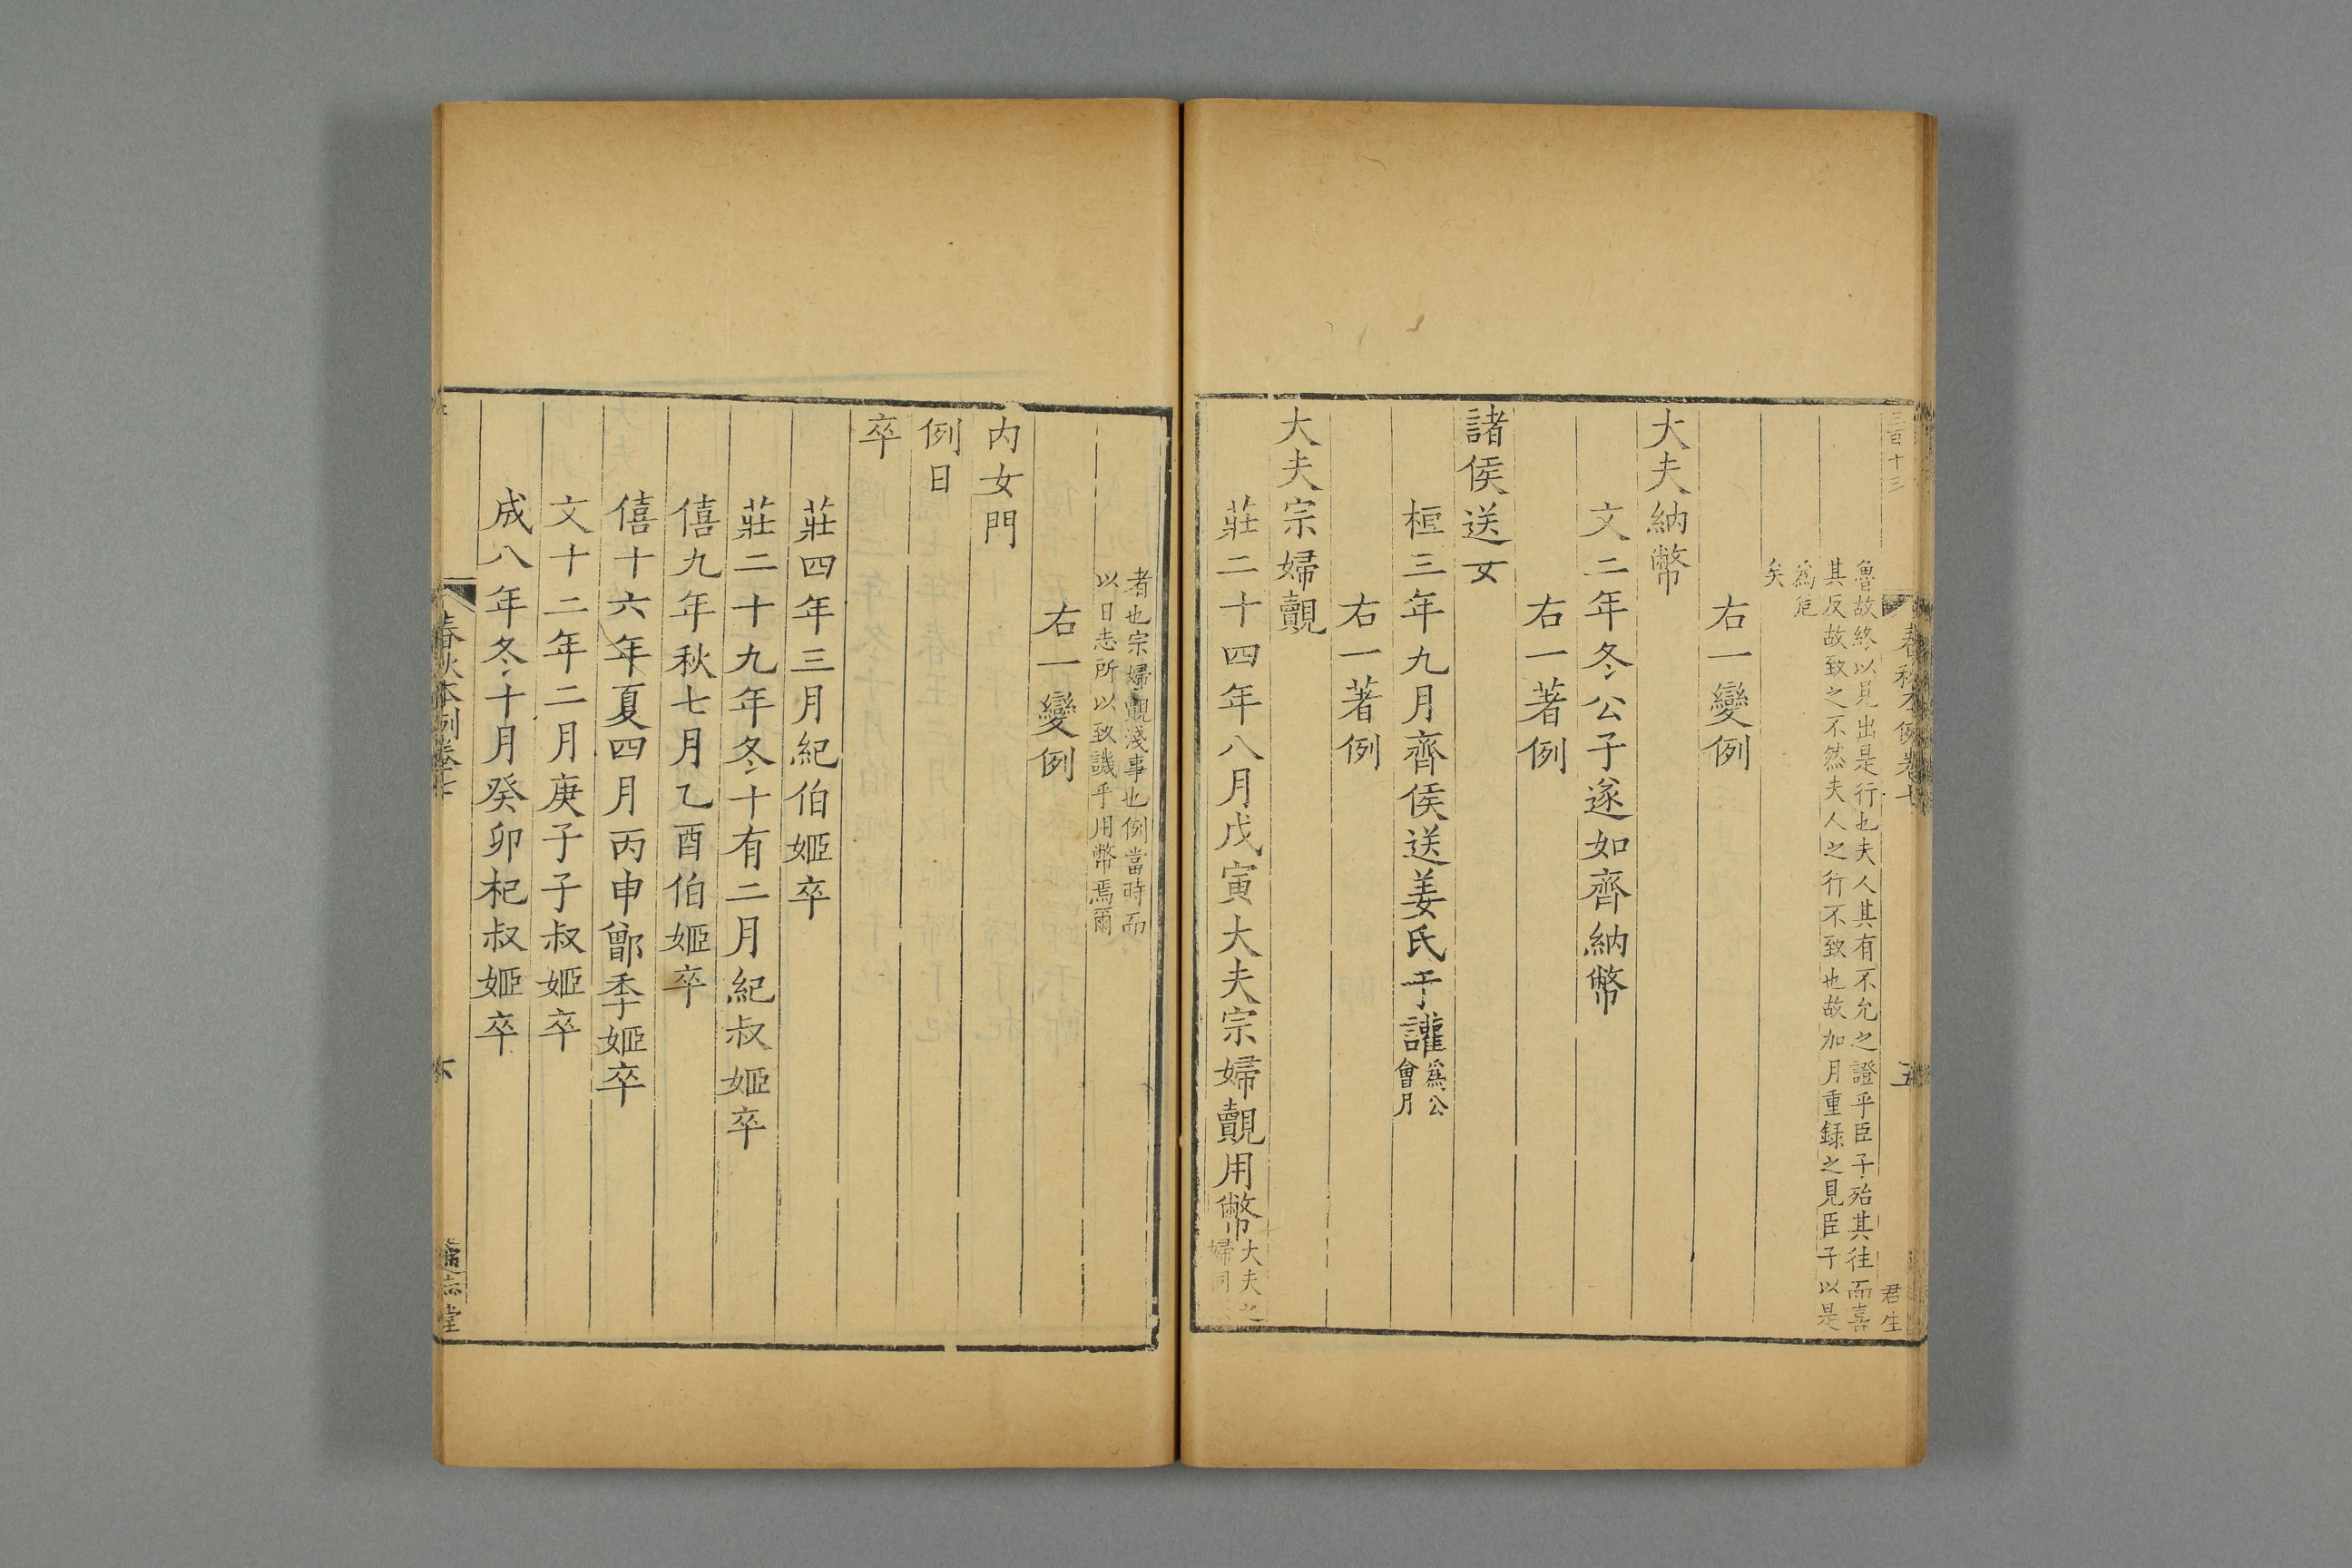 三百十三
春秋本例卷七
五
君生
魯故終以見出是行也夫人其有不允之證乎臣子殆其往而喜
其反故致之不然夫人之行不致也故加月重録之見臣子以是
爲危
矣
右一變例
大夫納幣
文二年冬公子遂如齊納幣
右一著例
諸侯送女
桓三年九月齊侯送姜氏于讙爲公
會月
右一著例
大夫宗婦覿
莊二十四年八月戊寅大夫宗婦覿用幣大夫之
婦同
者也宗婦覿淺事也例當時而
以日志所以致譏乎用幣焉爾
右一變例
内女門
例日
卒
莊四年三月紀伯姬卒
莊二十九年冬十有二月紀叔姬卒
僖九年秋七月乙酉伯姬卒
僖十六年夏四月丙申鄫季姬卒
文十二年二月庚子子叔姬卒
成八年冬十月癸卯杞叔姬卒
春秋本例卷七
六
通志堂